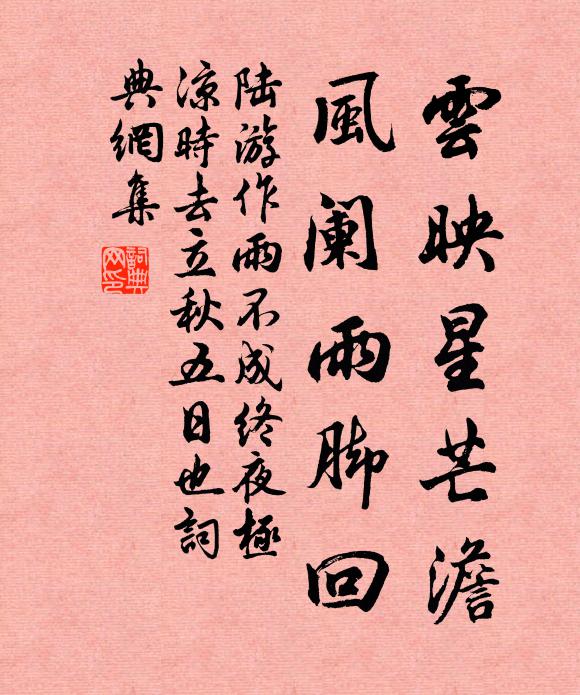 雲映星芒澹
風闌雨脚回
陆游作雨不成終夜極
涼時去立秋五日也詞
典網集
詞典网印